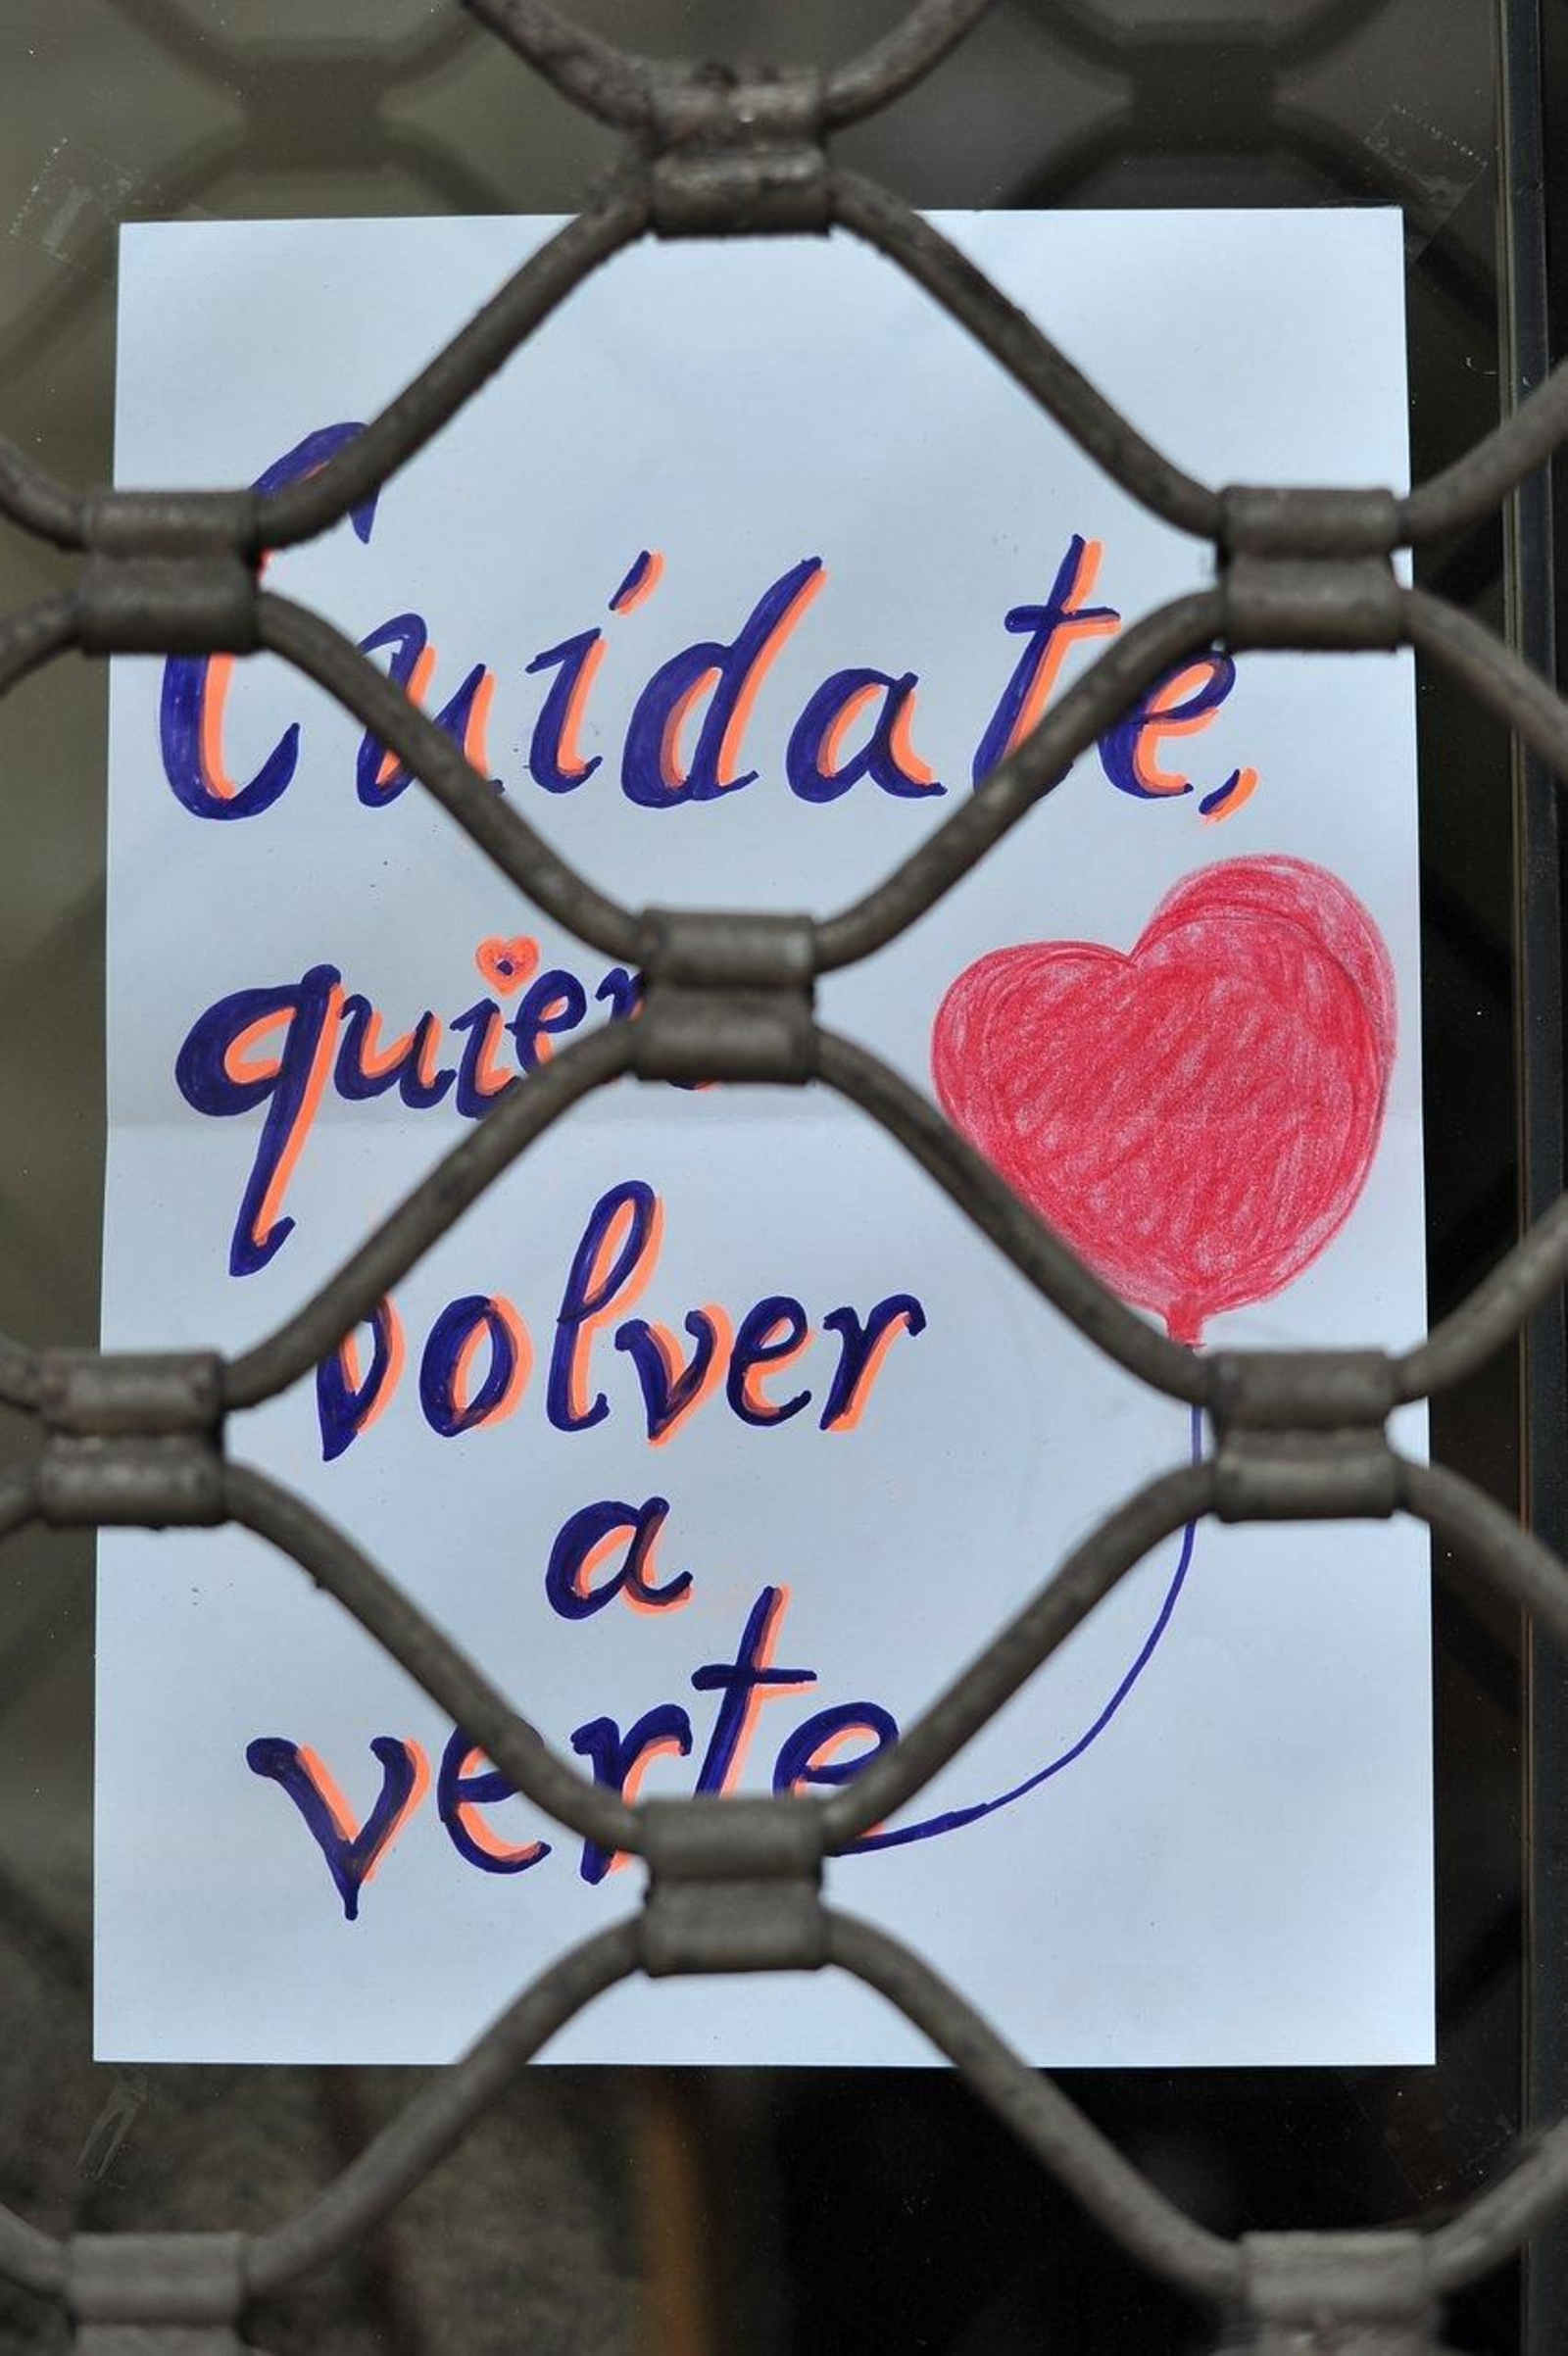 Cuídate,
quiero
volver
a
verte